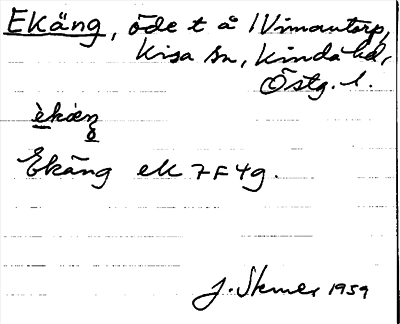 Ekäng, öde t å Vimantorp,
Kisa sn, Kinda hd,
Östg. l.
Ekäng ek 7F4g.
J. Stenér 1959